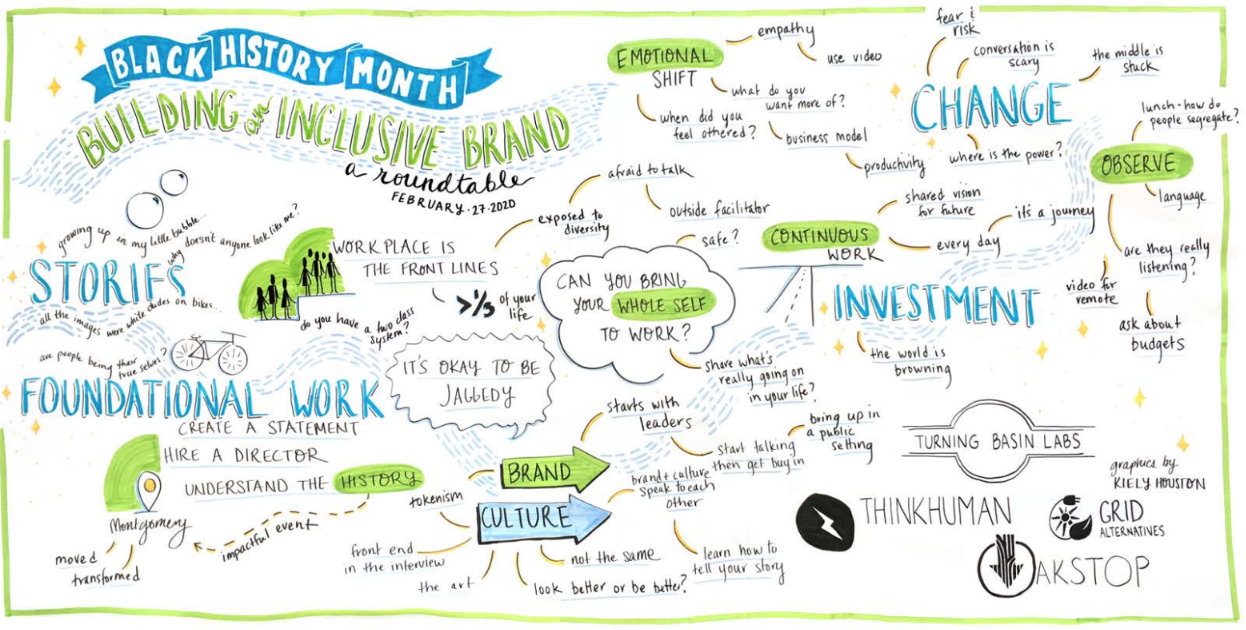 BLACK HISTORY MONTH
BUILDING an INCLUSIVE BRAND
a roundtable
FEBRUARY.27.2020
growing up in my little bubble...
why doesn't anyone look like me?
STORIES
all the images were white dudes on bikes...
are people being their
true selves?
WORKPLACE IS
THE FRONT LINES
>1/3 of your
life
do you have a two class
system?
exposed to
diversity
afraid to talk
outside facilitator
FOUNDATIONAL WORK
CREATE A STATEMENT
HIRE A DIRECTOR
UNDERSTAND THE HISTORY
impactful event
Montgomery
moved
transformed
IT'S OKAY TO BE
JAGGEDY
EMOTIONAL
SHIFT
empathy
use video
what do you
want more of?
when did you
feel othered?
business model
productivity
safe?
CAN YOU BRING
YOUR WHOLE SELF
TO WORK?
share what's
really going on
in your life?
BRAND
CULTURE
tokenism
starts with
leaders
start talking
then get buy in
bring up in
a public
setting
brand + culture
speak to each
other
learn how to
tell your story
not the same
look better or be better?
the art
front end
in the interview
CHANGE
fear &
risk
conversation is
scary
the middle is
stuck
where is the power?
OBSERVE
lunch - how do
people segregate?
language
are they really
listening?
video for
remote
ask about
budgets
CONTINUOUS
WORK
shared vision
for future
every day
it's a journey
INVESTMENT
the world is
browning
TURNING BASIN LABS
graphics by
KIELY HOUSTON
THINKHUMAN
GRID
ALTERNATIVES
OAKSTOP